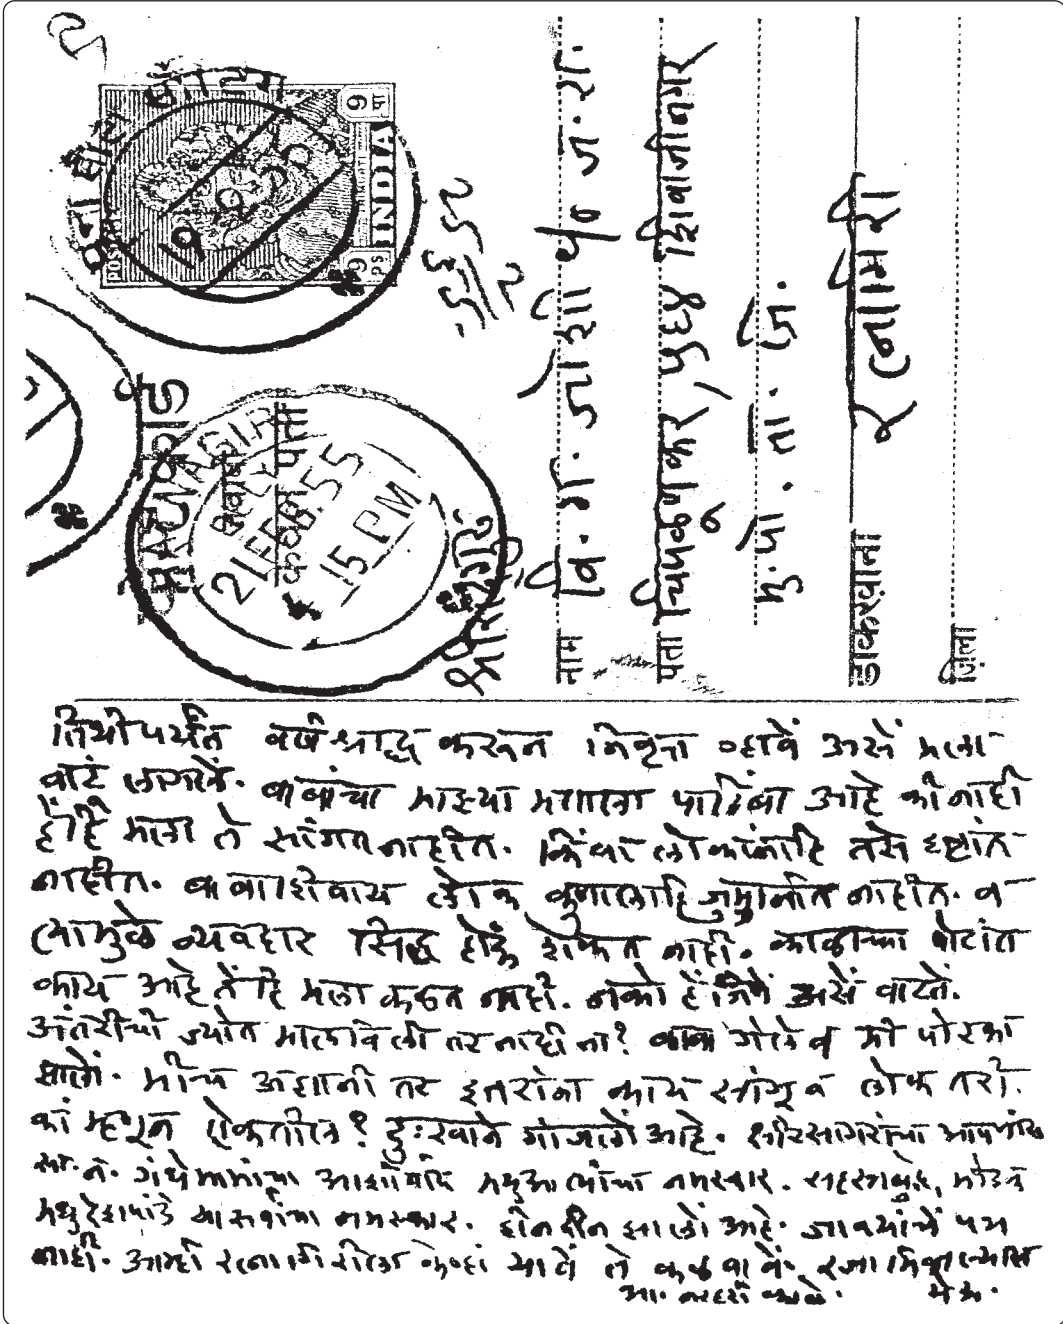 INDIA
POSTAGE
9 पा
9 PS
RATNAGIRI
21 FEB. 55
15 PM
केवल पता
नाम वि. ग. जोशी % ज. रा.
पता चिपळूणकर, ५८४ शिवाजीनगर
मु. पो. ता. जि.
डाकख़ाना रत्नागिरी
ज़िला
तिथीपर्यंत वर्षश्राद्ध करून निवृत्त व्हावें असें मला
वाटूं लागलें. बाबांचा माझ्या मताला पाठिंबा आहे कीं नाहीं
हेंहि मला ते सांगत नाहींत. किंवा लोकांनाहि तसे दृष्टांत
नाहींत. बाबाशिवाय लोक कुणालाहि जुमानीत नाहींत. व
त्यामुळें व्यवहार सिद्ध होऊं शकत नाहीं. काळाच्या पोटांत
काय आहे तेंहि मला कळत नाहीं. नको हें जिणें असें वाटतें.
अंतरीची ज्योत मालविली तर नाहीं ना? बाबा गेले व मी पोरका
झालों. मीच अज्ञानी तर इतरांना काय सांगू व लोक तरी
कां म्हणून ऐकतील? दुःखाने गांजलों आहे. क्षीरसागरांचा
सा. न. गंधेमामांचा आशीर्वाद मथुआत्यांचा नमस्कार. सहस्त्रबुद्धे,
मधु देशपांडे या सर्वांचा नमस्कार. दीनदीन झालों आहे. जावयांचें पत्र
नाहीं. आम्ही रत्नागिरीला केव्हां यावें ते कळवावें. रजा मिळाल्यास
येऊं.